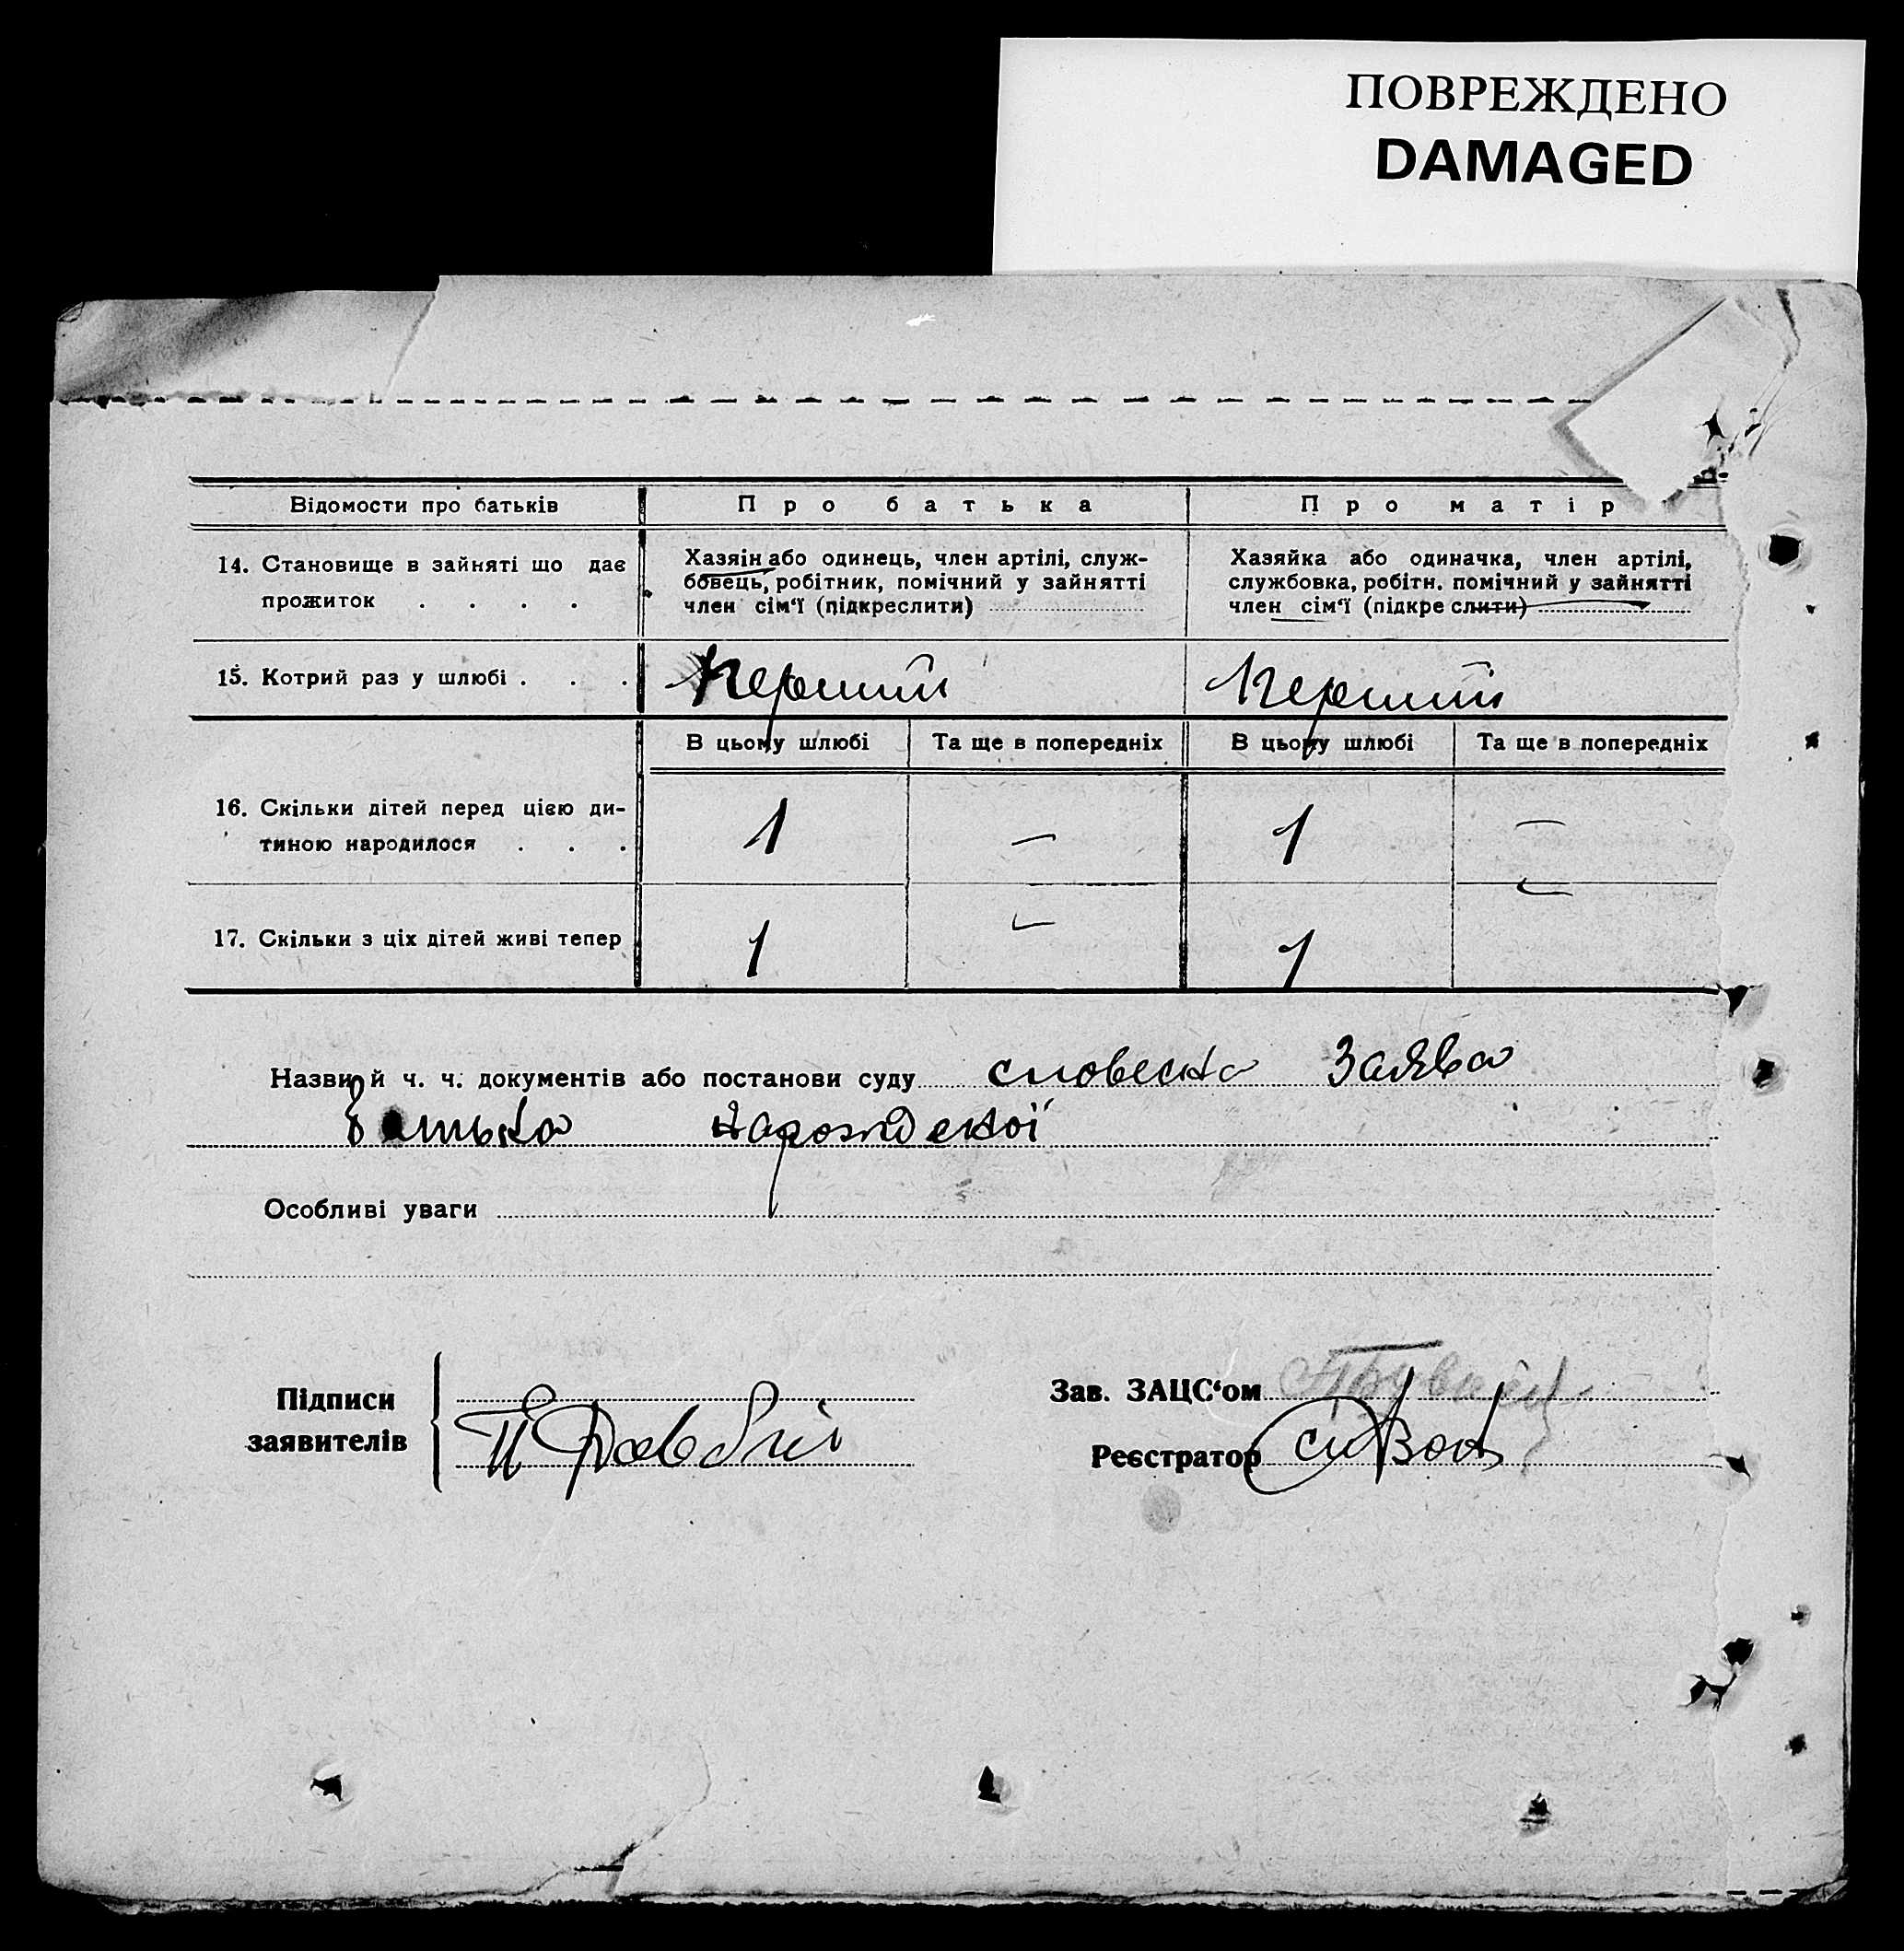 ПОВРЕЖДЕНО
DAMAGED
Відомости про батьків
Про батька
Про матір
14. Становище в зайняті що дає
прожиток . . . .
Хазяін або одинець, член артілі, служ-
бовець, робітник, помічний у зайнятті
член сім‘ї (підкреслити)
Хазяйка або одиначка, член артілі,
службовка, робітн. помічний у зайнятті
член сім‘ї (підкреслити)
15. Котрий раз у шлюбі . . .
Перший
Перший
В цьому шлюбі
Та ще в попередніх
В цьому шлюбі
Та ще в попередніх
16. Скільки дітей перед цією ди-
тиною народилося . . .
1 — 1 —
17. Скільки з ціх дітей живі тепер
1 — 1 —
Назви й ч. ч. документів або постанови суду словесна Заява
батька народженої
Особливі уваги
Підписи
заявителів
Зав. ЗАЦС‘ом
Реєстратор